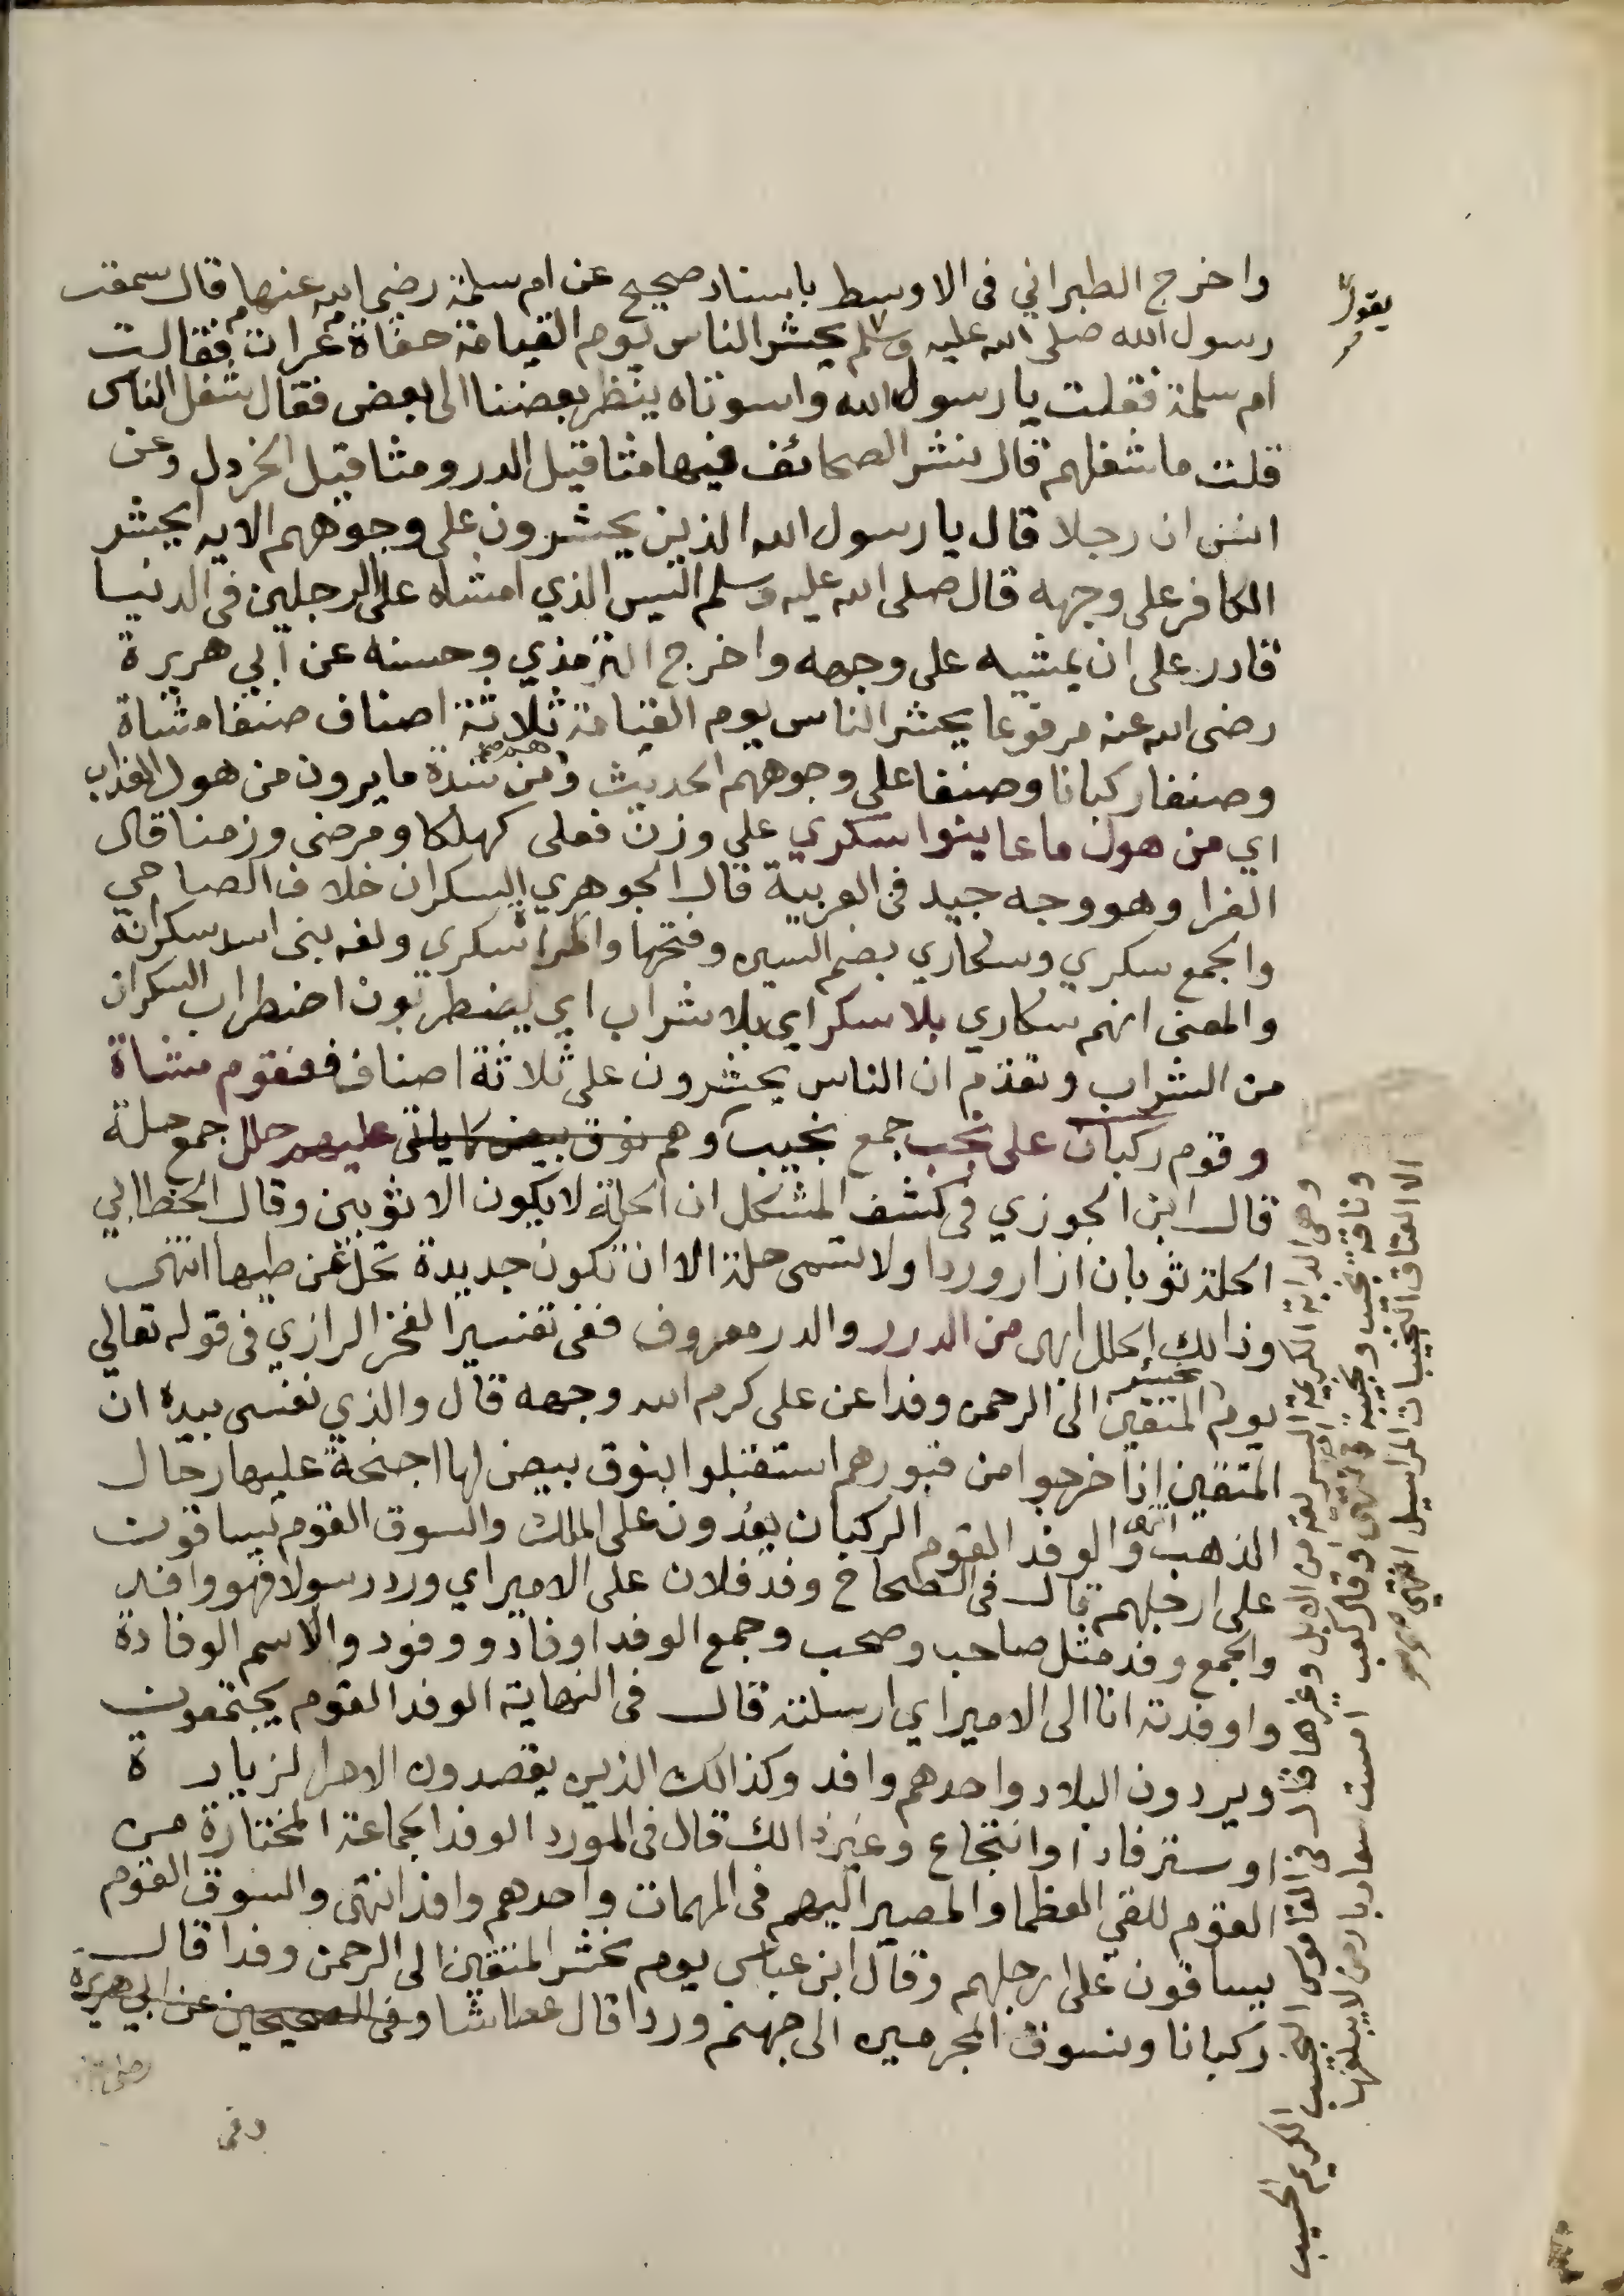 واخرج الطبراني فى الاوسط باسناد صحيح عن ام سلمة رضى الله عنها قال سمعت
يقول
رسول الله صلى الله عليه وسلم يحشر الناس يوم القيامة حفاة عراة فقالت
ام سلمة فقلت يا رسول الله واسوتاه ينظر بعضنا الى بعض فقال شغل الناس
قلت ما شغلهم قال نشر الصحائف فيها مثاقيل الدر ومثاقيل الخردل وعن
انس ان رجلا قال يا رسول الله الذين يحشرون على وجوههم الايه ايحشر
الكافر على وجهه قال صلى الله عليه وسلم اليس الذي امشاه على الرجلين فى الدنيا
قادر على ان يمشيه على وجهه واخرج الترمذي وحسنه عن ابي هريرة
رضى الله عنه مرفوعا يحشر الناس يوم القيامة ثلاثة اصناف صنفا مشاة
وصنفا ركبانا وصنفا على وجوههم الحديث وهم من شدة ما يرون من هول العذاب
اي من هول ما عاينوا سكري على وزن فعلى كهلكا ومرضى وزمنا قال
الفرا وهو وجه جيد فى العربية قال الجوهري السكران خلاف الصاحي
والجمع سكري وسكاري بضم السين وفتحها والمراة سكري ولغه بنى اسد سكرانة
والمعنى انهم سكاري بلا سكر اي بلا شراب اي يضطربون اضطراب السكران
من الشراب وتقدم ان الناس يحشرون على ثلاثة اصناف فقوم مشاة
وقوم ركبان على نجب جمع نجيب وهم نوق بيض كاياتى عليهم حلل جمع حلة
قال ابن الجوزي فى كشف المشكل ان الحلة لا يكون الا ثوبين وقال الخطابي
الحلة ثوبان ازار وردا ولا تسمى حلة الا ان تكون جديدة تحل عن طيها انتهى
وذالك الحلل ابهى من الدرر والدر معروف ففى تفسير الفخر الرازي فى قوله تعالي
يوم نحشر المتقين الى الرحمن وفدا عن على كرم الله وجهه قال والذي نفسى بيده ان
المتقين اذا خرجوا من قبورهم استقبلوا بنوق بيض لها اجنحة عليها رحال
الذهب انتهى والوفد القوم الركبان يفدون على الملك والسوق القوم يساقون
على ارجلهم قال فى الصحاح وفد فلان على الامير اي ورد رسولا فهو وافد
والجمع وفد مثل صاحب وصحب وجمع الوفد اوفاد ووفود والاسم الوفادة
واوفدته انا الى الامير اي ارسلته قال فى النهاية الوفد القوم يجتمعون
ويردون البلاد واحدهم وافد وكذالك الذين يقصدون الامرا لزيارة
او سترفاد او انتجاع وغير ذالك قال فى المورد الوفد الجماعة المختارة من
القوم للقى العظما والمصير اليهم فى المهمات واحدهم وافد انتهى والسوق القوم
يساقون على ارجلهم وقال ابن عباس يوم نحشر المتقين الى الرحمن وفدا قال
ركبانا ونسوق المجرمين الى جهنم وردا قال عطاشا وفى الصحيحين عن ابي هريرة
وفى
وهى الدابة الكريمة السريعة من الابل وغيرها قال فى القاموس النجيب الكريم الحسيب
وناقة نجيب ونجيبة انتهى وقال كعب امست سعاد بارض لا يبلغها
الا العتاق النجيبات المراسيل انتهى